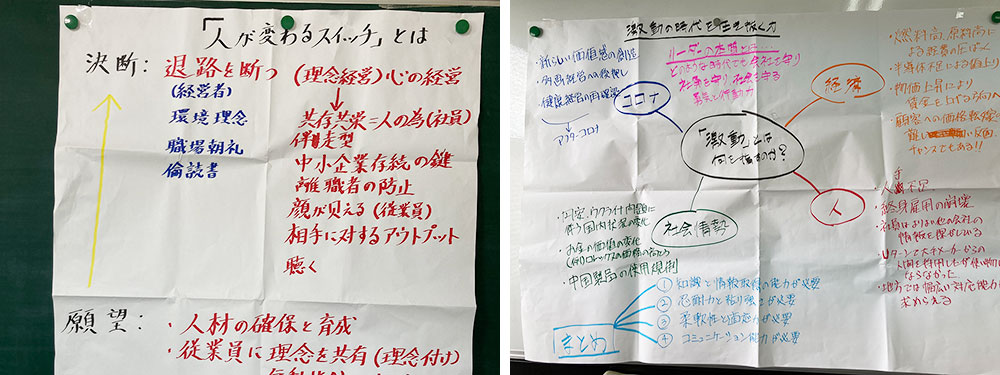 「人が変わるスイッチ」とは
決断: 退路を断つ (理念経営)心の経営
(経営者)
環境理念
職場朝礼
倫読書
共存共栄=人の為(社員)
伴走型
中小企業存続の鍵
離職者の防止
顔が見える(従業員)
相手に対するアウトプット
聴く
願望:
・人材の確保と育成
・従業員に理念を共有(理念付け)
激動の時代を生き抜く力
リーダーの本質とは…
どのような時代でも会社を守り
社員を守り社会を守る
勇気と行動力
・新しい価値感の創造
健康経営の再確認
アフターコロナ
コロナ
「激動」とは
何を指すのか?
経済
・燃料高、原材料高に
よる経営の圧ぱく
・半導体不足による値上り
・物価上昇により
賃金を上げる方向へ
・顧客への価格転嫁
難しい
チャンスでもある!!
人
・人手不足
・終身雇用の崩壊
・社員はよりよい他の会社の
情報を探している
・Uターンで大手メーカーからの
人間を採用したが使い物に
ならなかった
・地方では幅広い対応能力が
求められる
社会情勢
・円安、ウクライナ問題に
伴う国内状況の変化
・お金の価値の変化
・中国製品の使用規制
まとめ
① 知識と情報取得の能力が必要
② 忍耐力と粘り強さが必要
③ 柔軟性と適応力が必要
④ コミュニケーション能力が必要